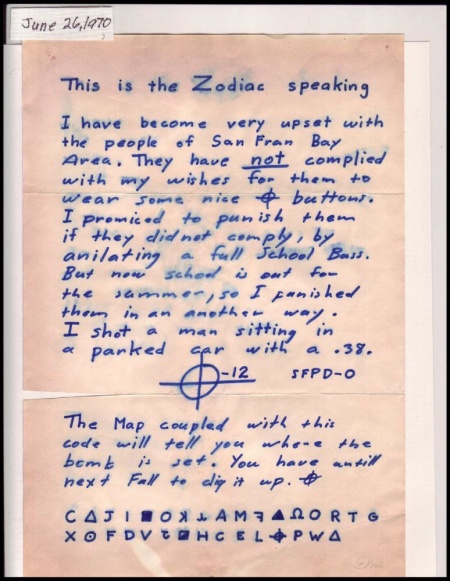 June 26, 1970
This is the Zodiac speaking
I have become very upset with
the people of San Fran Bay
Area. They have not complied
with my wishes for them to
wear some nice ⌖ buttons.
I promiced to punish them
if they did not comply, by
anilating a full School Buss.
But now school is out for
the summer, so I punished
them in an another way.
I shot a man sitting in
a parked car with a .38.
⌖-12 SFPD-0
The Map coupled with this
code will tell you where the
bomb is set. You have untill
next Fall to dig it up. ⌖
C Δ J I ■ O ꓘ ⅄ A M ꟻ ▲ Ω O R T G
X ⊙ F D V Ↄ ■ H C E L ⌖ P W Δ